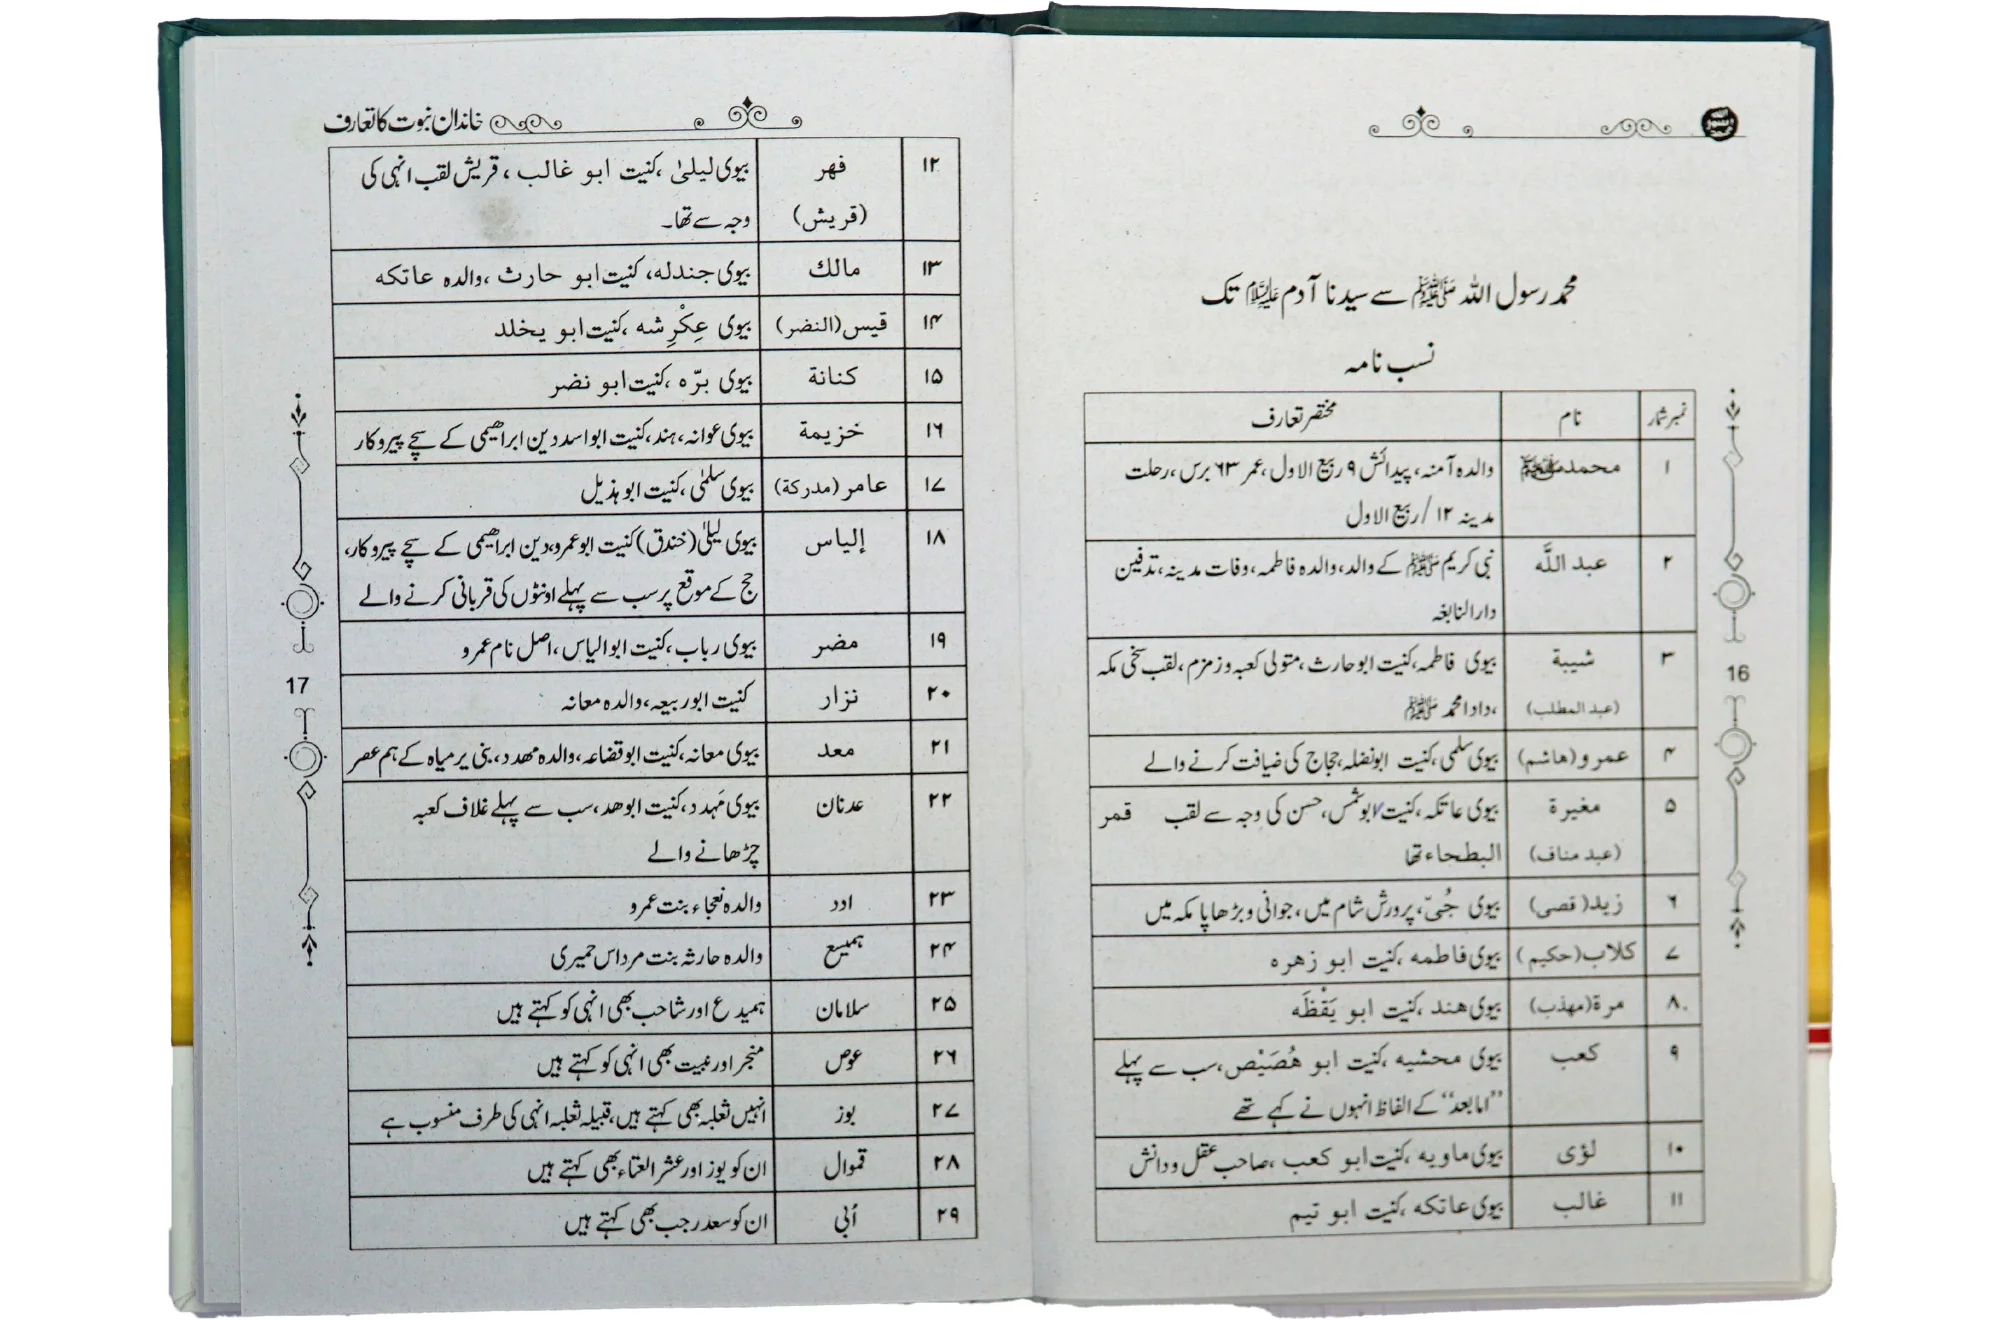 محمد رسول اللہ ﷺ سے سیدنا آدم علیہ السلام تک
نسب نامہ
نمبر شمار نام مختصر تعارف
۱ محمد ﷺ والدہ آمنہ، پیدائش ۹ ربیع الاول، عمر ۶۳ برس، رحلت
مدینہ ۱۲/ ربیع الاول
۲ عبد اللّٰہ نبی کریم ﷺ کے والد، والدہ فاطمہ، وفات مدینہ، تدفین
دار النابغہ
۳ شیبة بیوی فاطمہ، کنیت ابوحارث، متولی کعبہ و زمزم، لقب سخی مکہ
(عبد المطلب) ،دادا محمد ﷺ
۴ عمرو (ھاشم) بیوی سلمی، کنیت ابونضلہ، حجاج کی ضیافت کرنے والے
۵ مغیرة بیوی عاتکہ، کنیت ابوشمس، حسن کی وجہ سے لقب قمر
(عبد مناف) البطحاء تھا
۶ زید (قصی) بیوی حُبیّ، پرورش شام میں، جوانی و بڑھاپا مکہ میں
۷ کلاب (حکیم) بیوی فاطمه، کنیت ابو زھرہ
۸ مرة (مھذب) بیوی ھند، کنیت ابو یَقْظَه
۹ کعب بیوی محشیه، کنیت ابو ھُصَیْص، سب سے پہلے
”اما بعد“ کے الفاظ انہوں نے کہے تھے
۱۰ لؤی بیوی ماویه، کنیت ابو کعب، صاحب عقل و دانش
۱۱ غالب بیوی عاتکه، کنیت ابو تیم
16
خاندان نبوت کا تعارف
۱۲ فھر بیوی لیلیٰ، کنیت ابو غالب، قریش لقب انہی کی
(قریش) وجہ سے تھا۔
۱۳ مالك بیوی جندله، کنیت ابو حارث، والدہ عاتکه
۱۴ قیس (النضر) بیوی عِکْرِشه، کنیت ابو یخلد
۱۵ کنانة بیوی برّہ، کنیت ابو نضر
۱۶ خزیمة بیوی عوانہ، ہند، کنیت ابو اسد دین ابراھیمی کے سچے پیروکار
۱۷ عامر (مدرکة) بیوی سلمٰی، کنیت ابو ہذیل
۱۸ إلیاس بیوی لیلیٰ (خندق) کنیت ابو عمرو، دین ابراھیمی کے سچے پیروکار،
حج کے موقع پر سب سے پہلے اونٹوں کی قربانی کرنے والے
۱۹ مضر بیوی رباب، کنیت ابو الیاس، اصل نام عمرو
۲۰ نزار کنیت ابو ربیعہ، والدہ معانہ
۲۱ معد بیوی معانہ، کنیت ابو قضاعہ، والدہ مھدد، بنی یرمیاہ کے ہم عصر
۲۲ عدنان بیوی مَہدد، کنیت ابو ھد، سب سے پہلے غلاف کعبہ
چڑھانے والے
۲۳ ادد والدہ نعجاء بنت عمرو
۲۴ ہمیسع والدہ حارثہ بنت مرداس حمیری
۲۵ سلامان ہمیدع اور شاحب بھی انہی کو کہتے ہیں
۲۶ عوص منجر اور عبیت بھی انہی کو کہتے ہیں
۲۷ بوز انہیں ثعلبہ بھی کہتے ہیں، قبیلہ ثعلبہ انہی کی طرف منسوب ہے
۲۸ قموال ان کو یوز اور عشر العتاء بھی کہتے ہیں
۲۹ اُبی ان کو سعد رجب بھی کہتے ہیں
17